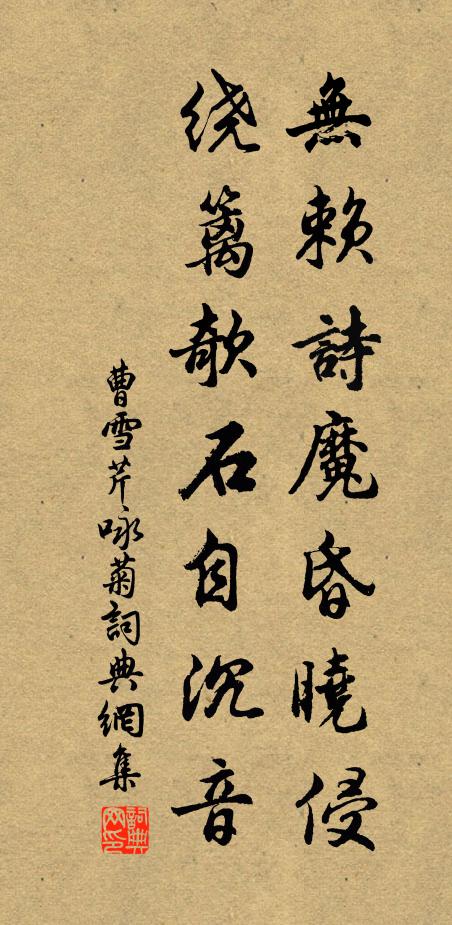 無賴詩魔昏曉侵
绕籬欹石自沉音
曹雪芹咏菊詞典網集
詞典网印